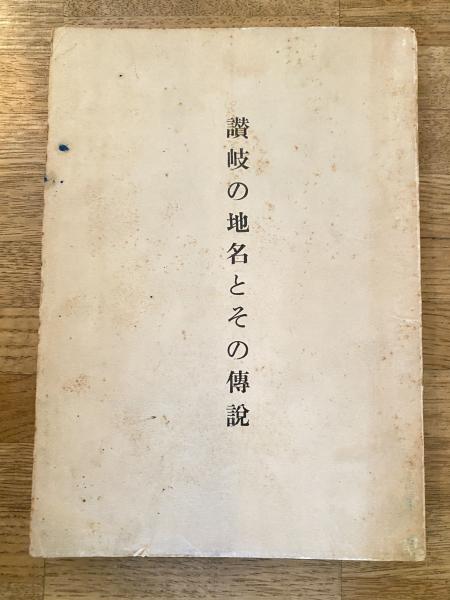 讃岐の地名とその傳說